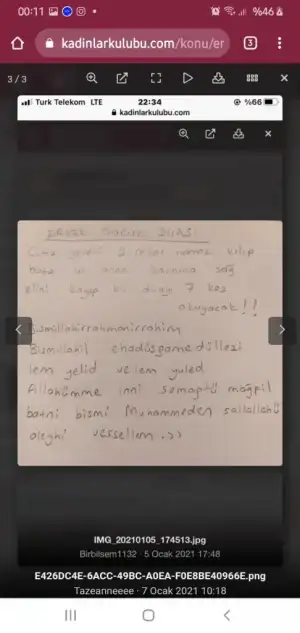 00:11
%46
kadinlarkulubu.com/konu/er
3
3 / 3
Turk Telekom LTE 22:34 %66
kadinlarkulubu.com
ERKEK ÇOCUK DUASI
Cuma günü 2 rekat namaz kılıp
baba anne karnına sağ
elini koyup bu duayı 7 kez
okuyacak !!
Bismillahirrahmanirrahim
Bismillahil ehadüssamedillezi
lem yelid ve lem yuled
Allahümme inni
batni bismi Muhammeden sallallahü
aleyhi vessellem
IMG_20210105_174513.jpg
Birbilsem1132 · 5 Ocak 2021 17:48
E426DC4E-6ACC-49BC-A0EA-F0E8BE40966E.png
Tazeanneeee · 7 Ocak 2021 10:18